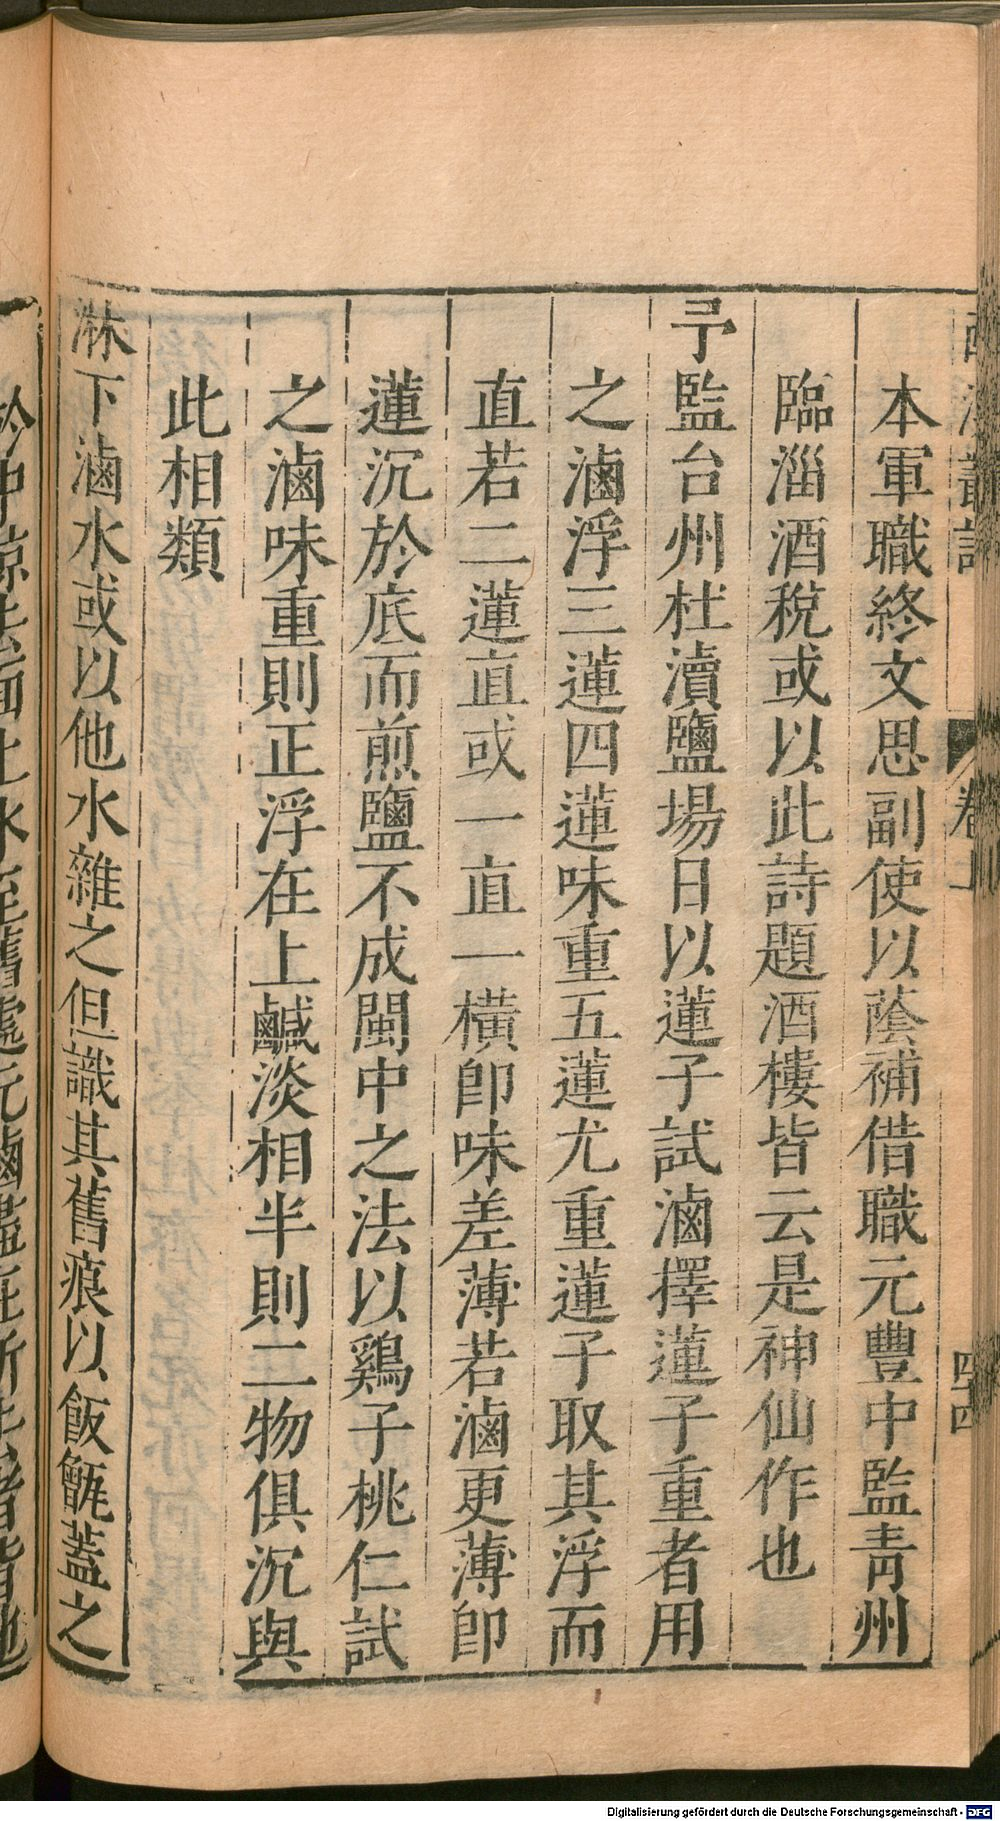 卷上
四四
本軍職終文思副使以蔭補借職元豐中監青州
臨淄酒稅或以此詩題酒樓皆云是神仙作也
予監台州杜瀆鹽場日以蓮子試滷擇蓮子重者用
之滷浮三蓮四蓮味重五蓮尤重蓮子取其浮而
直若二蓮直或一直一橫卽味差薄若滷更薄卽
蓮沉於底而煎鹽不成閩中之法以鷄子桃仁試
之滷味重則正浮在上鹹淡相半則二物俱沉與
此相類
淋下滷水或以他水雜之但識其舊痕以飯甑蓋之
Digitalisierung gefördert durch die Deutsche Forschungsgemeinschaft - DFG